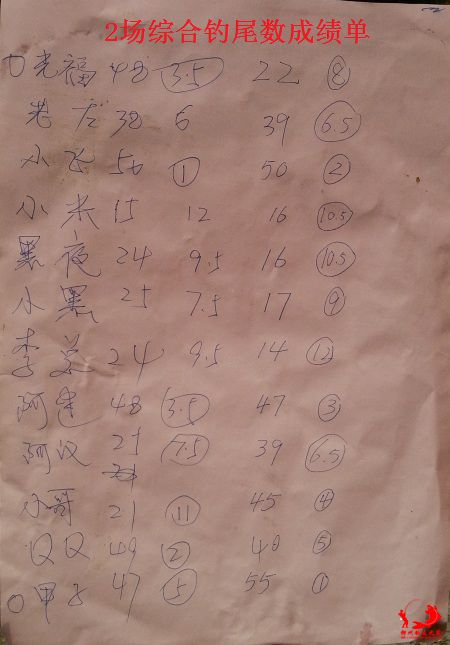 2场综合钓尾数成绩单
光福 48 3.5 22 8
老虎 38 6 39 6.5
小飞 50 1 50 2
小米 15 12 16 10.5
黑夜 24 9.5 16 10.5
小黑 25 7.5 17 9
李总 24 9.5 14 12
阿建 48 3.5 47 3
阿汉 25 7.5 39 6.5
小哥 21 11 45 4
仪仪 49 2 40 5
甲子 47 5 55 1